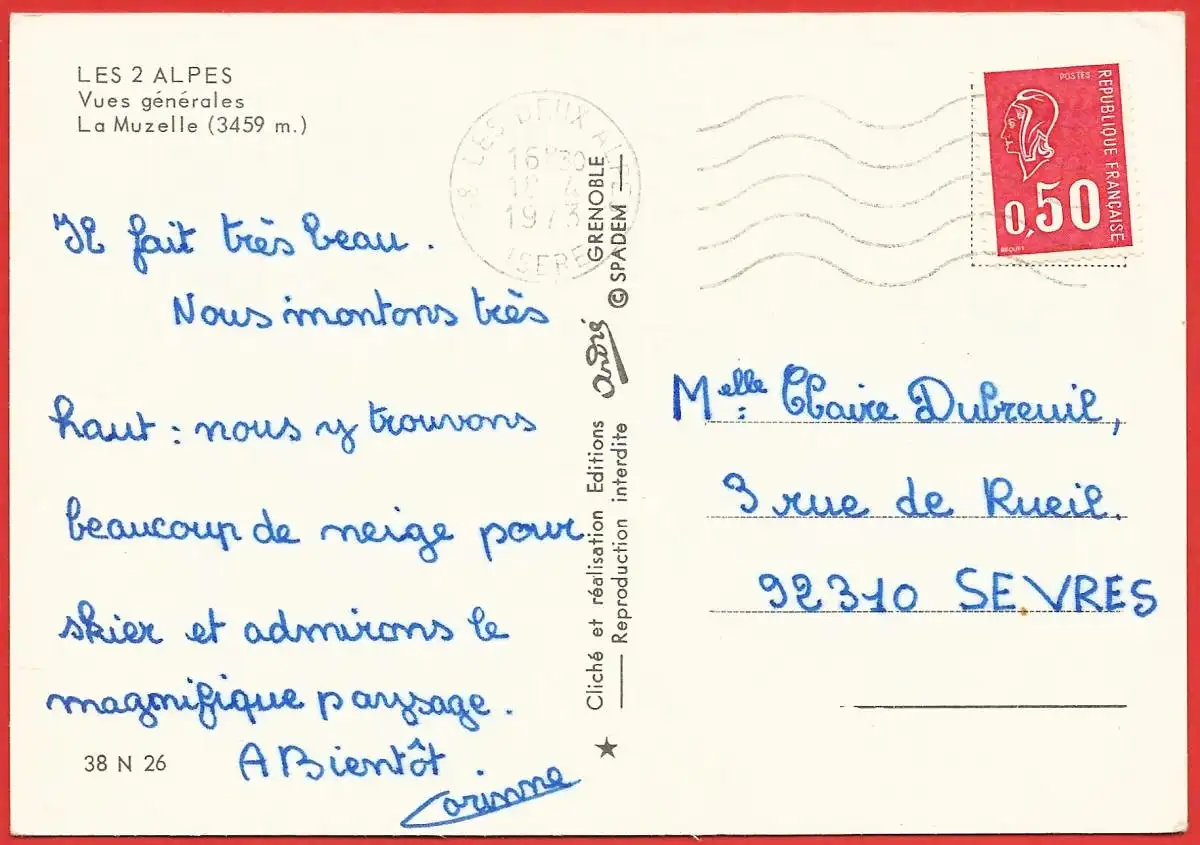 LES 2 ALPES
Vues générales
La Muzelle (3459 m.)
Il fait très beau.
Nous montons très
haut : nous y trouvons
beaucoup de neige pour
skier et admirons le
magnifique paysage.
A Bientôt
Corinne
38 N 26
38 LES DEUX ALPES
16H30
4
1973
ISERE
Cliché et réalisation Editions André GRENOBLE
Reproduction interdite © SPADEM
POSTES
REPUBLIQUE FRANÇAISE
0,50
BEQUET
Melle: Claire Dubreuil,
3 rue de Rueil.
92310 SEVRES